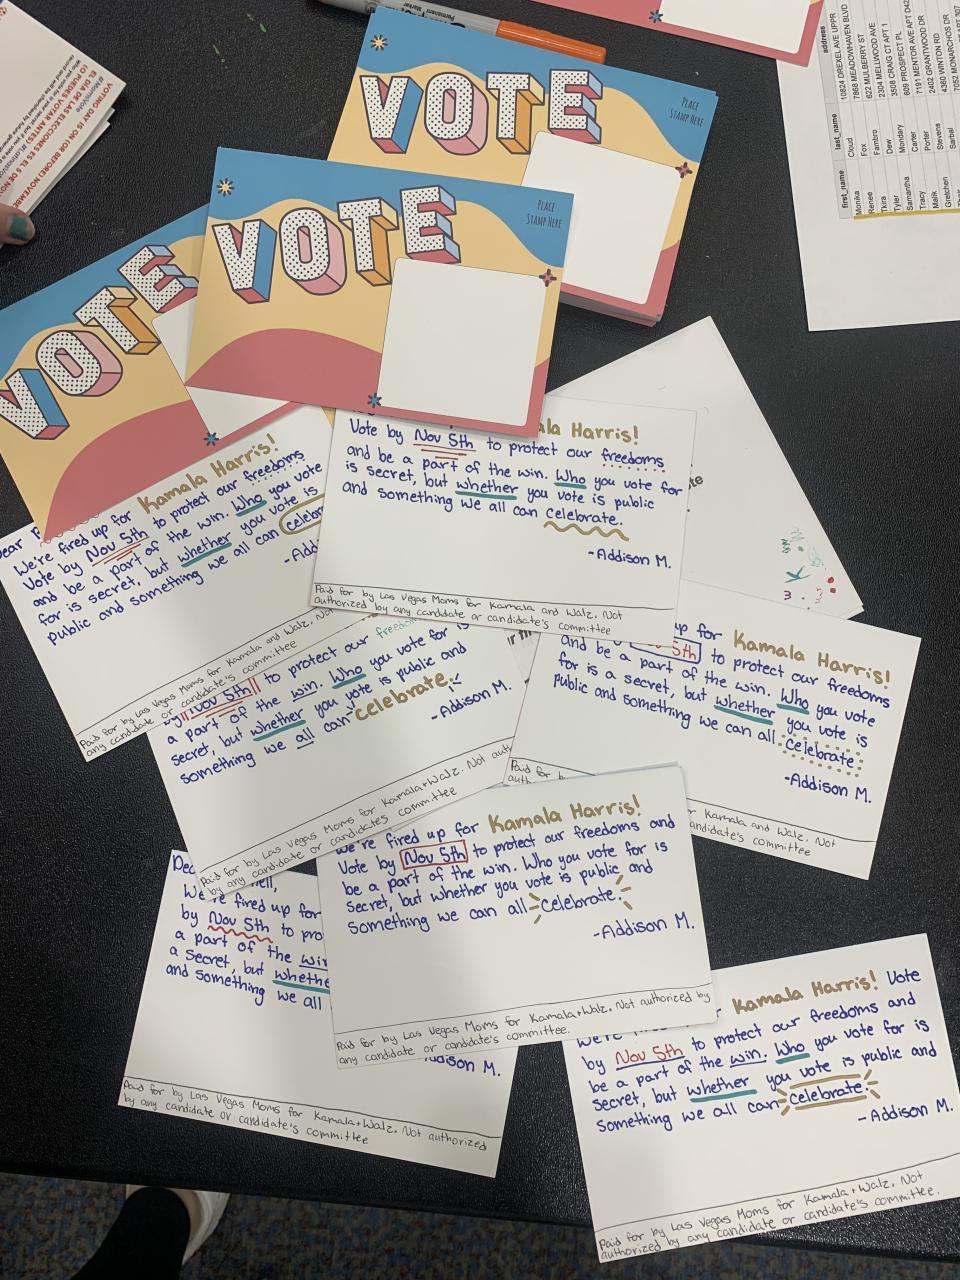 Permanent Marker
VOTE
PLACE
STAMP HERE
VOTE
PLACE
STAMP HERE
VOTE
VOTING DAY IS ON (OR BEFORE) NOVEMBER
EL DÍA DE LAS ELECCIONES ES
(O PUEDES VOTAR ANTES)
first_name last_name address
Monika Cloud 10824 DREXEL AVE UPPR
Renee Fox 7868 MEADOWHAVEN BLVD
Tkira Fambro 622 MULBERRY ST
Tyler Dew 2304 MELLWOOD AVE
Samantha Monday 3508 CRAIG CT APT 1
Tracy Carter 609 PROSPECT PL
Malik Porter 7191 MENTOR AVE APT D42
Gretchen Stevens 2402 GRANTWOOD DR
Sarbal 4360 WINTON RD
7052 MONARCHOS DR
We're fired up for Kamala Harris!
Vote by Nov 5th to protect our freedoms
and be a part of the win. Who you vote
for is secret, but whether you vote is
public and something we all can
Paid for by Las Vegas Moms for Kamala and Walz. Not
any candidate or candidate's committee
Harris!
Vote by Nov 5th to protect our freedoms
and be a part of the win. Who you vote for
is secret, but whether you vote is public
and something we all can celebrate.
-Addison M.
Paid for by Las Vegas Moms for Kamala and Walz. Not
authorized by any candidate or candidate's committee
Nov 5th to protect our
a part of the win. Who you vote for is
secret, but whether you vote is public and
something we all can celebrate.
-Addison M.
Paid for by Las Vegas Moms for Kamala+Walz. Not
by any candidate or candidate's committee
up for Kamala Harris!
5th to protect our freedoms
and be a part of the win. Who you vote
for is a secret, but whether you vote is
public and something we can all celebrate.
-Addison M.
Paid for
Kamala and Walz. Not
candidate's committee
We're fired up for Kamala Harris!
Vote by Nov 5th to protect our freedoms and
be a part of the win. Who you vote for is
secret, but whether you vote is public and
something we can all celebrate.
-Addison M.
Paid for by Las Vegas Moms for Kamala+Walz. Not authorized by
any candidate or candidate's committee.
We're fired up for
by Nov 5th to
a part of the win
a secret, but
and something we all
Addison M.
Paid for by Las Vegas Moms for Kamala+Walz. Not authorized
by any candidate or candidate's committee
We're Kamala Harris! Vote
by Nov 5th to protect our freedoms and
be a part of the win. Who you vote for is
secret, but whether you vote is public and
something we all can celebrate.
-Addison M.
Paid for by Las Vegas Moms for Kamala+Walz. Not
authorized by any candidate or candidate's committee.